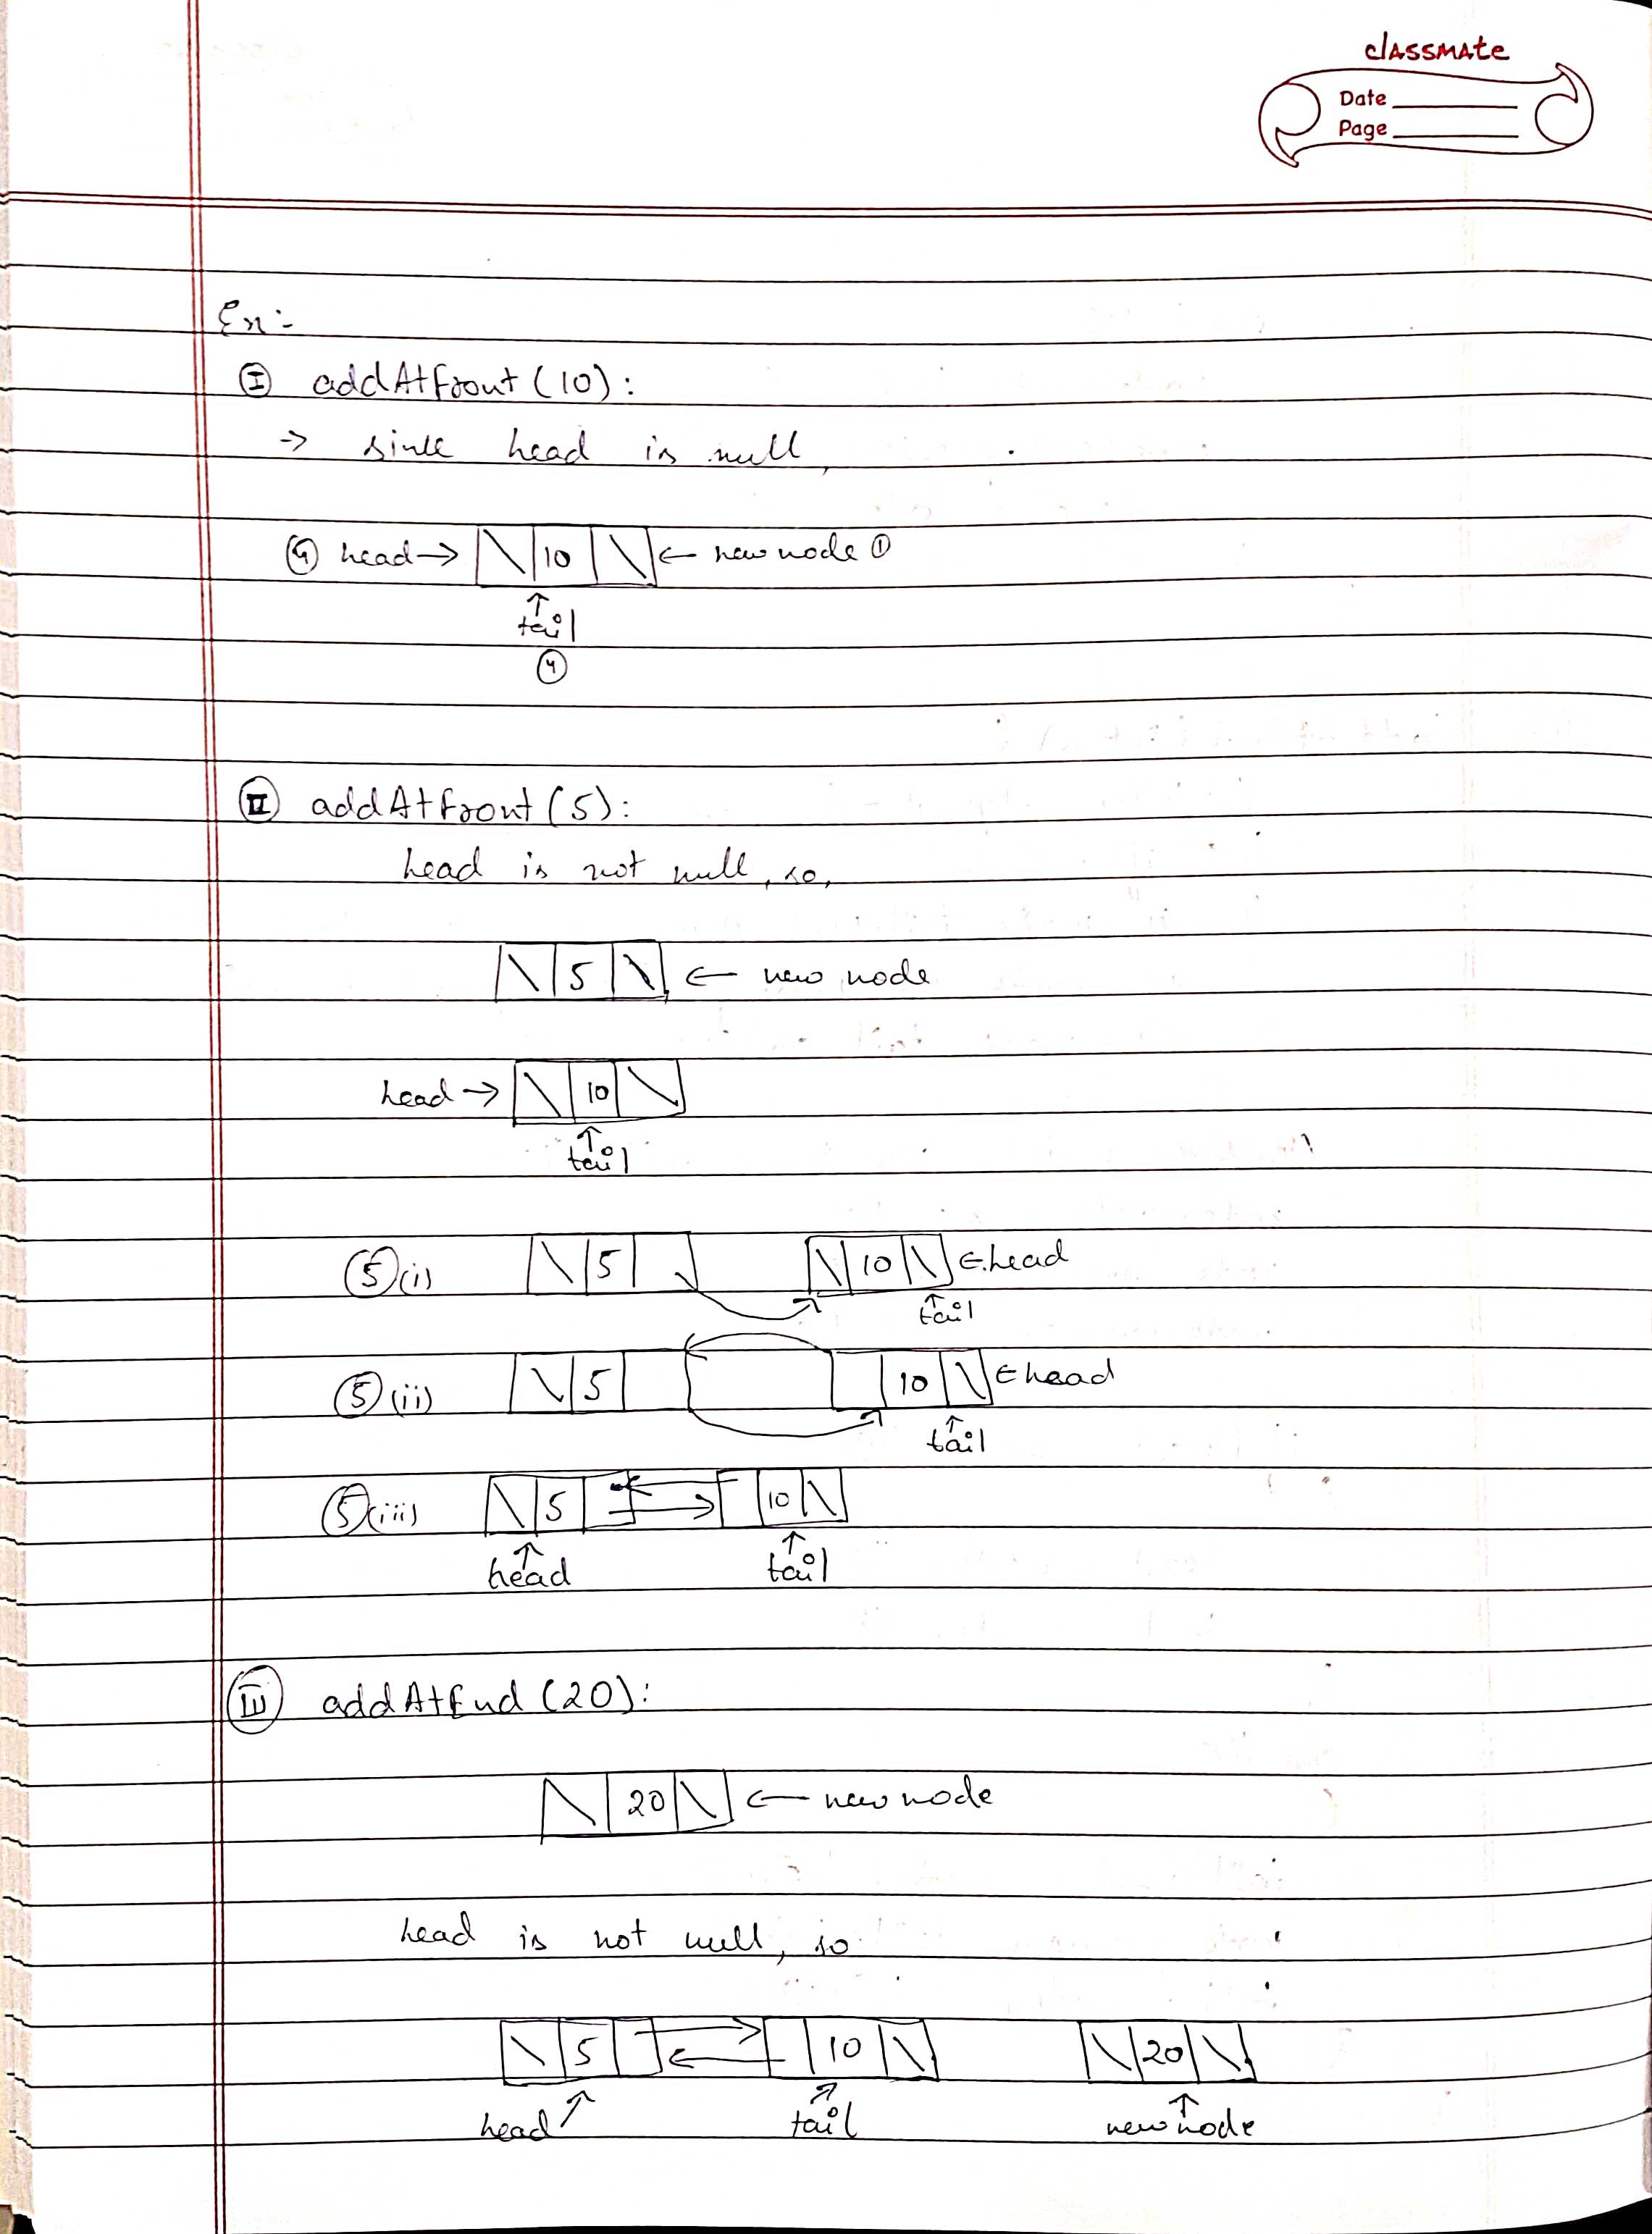 classmate
Date
Page
Ex:-
I addAtfront (10):
→ since head is null,
④ head → \ 10 \ ← new node ①
↑
tail
④
II addAtfront (5):
head is not null, so,
\ 5 \ ← new node
head → \ 10 \
↑
tail
⑤ (i) \ 5 \ 10 \ ← head
↑
tail
⑤ (ii) \ 5 10 \ ← head
↑
tail
⑤ (iii) \ 5 10 \
↑ ↑
head tail
III addAtEnd (20):
\ 20 \ ← new node
head is not null, so
\ 5 10 \ \ 20 \
↑ ↑ ↑
head tail new node